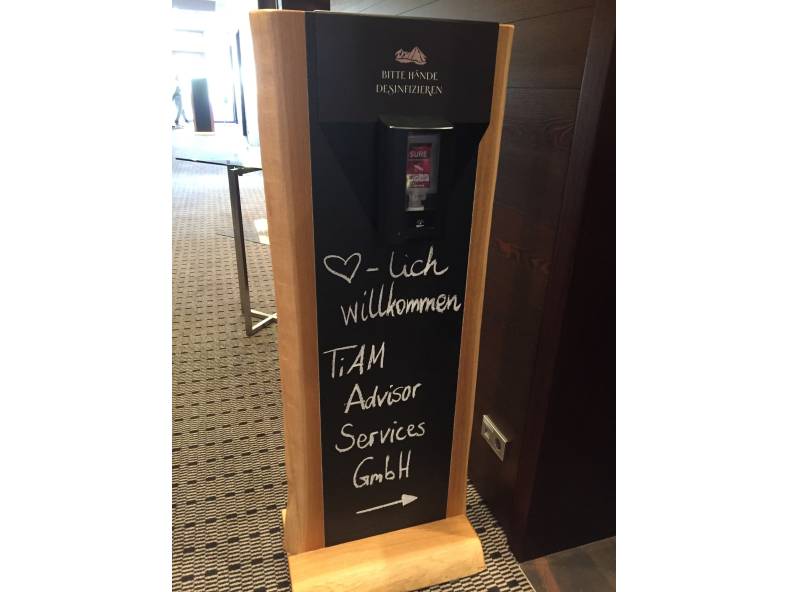 BITTE HÄNDE
DESINFIZIEREN
SURE
♡-lich
willkommen
TiAM
Advisor
Services
GmbH
→